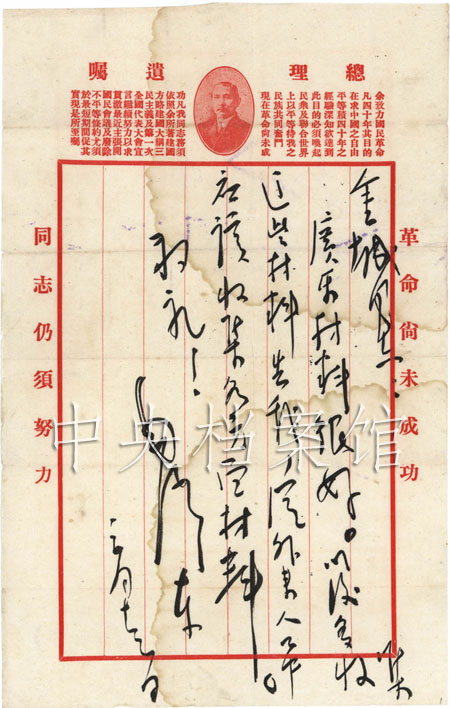 總理遺囑
余致力國民革命
凡四十年其目的
在求中國之自由
平等積四十年之
經驗深知欲達到
此目的必須喚起
民眾及聯合世界
上以平等待我之
民族共同奮鬥
現在革命尚未成
功凡我同志務須
依照余所著建國
方略建國大綱三
民主義及第一次
全國代表大會宣
言繼續努力以求
貫澈最近主張開
國民會議及廢除
不平等條約尤須
於最短期間促其
實現是所至囑
革命尚未成功
金城同志：
廣东材料很好。以後多收集
這些材料告我。外人工作。
应該收集各方面材料
敬礼！
毛澤东
三月十三日
同志仍須努力
中央档案馆